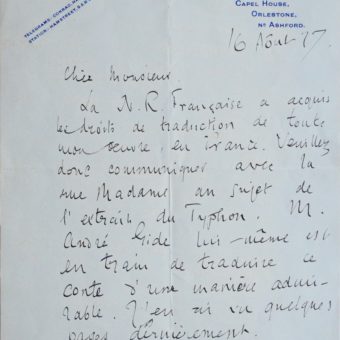 TELEGRAMS: CONRAD, HAM
STATION: HAMSTREET, S.E. &
CAPEL HOUSE,
ORLESTONE,
NR ASHFORD.
16 Août 17.
Cher Monsieur
La N.R. Française a acquis
les droits de traduction de toute
mon œuvre en France. Veuillez
donc communiquer avec la
rue Madame au sujet de
l'extrait du Typhon. M.
André Gide lui-même est
en train de traduire ce
conte d'une manière admi-
rable. J'en ai vu quelques
pages dernièrement.